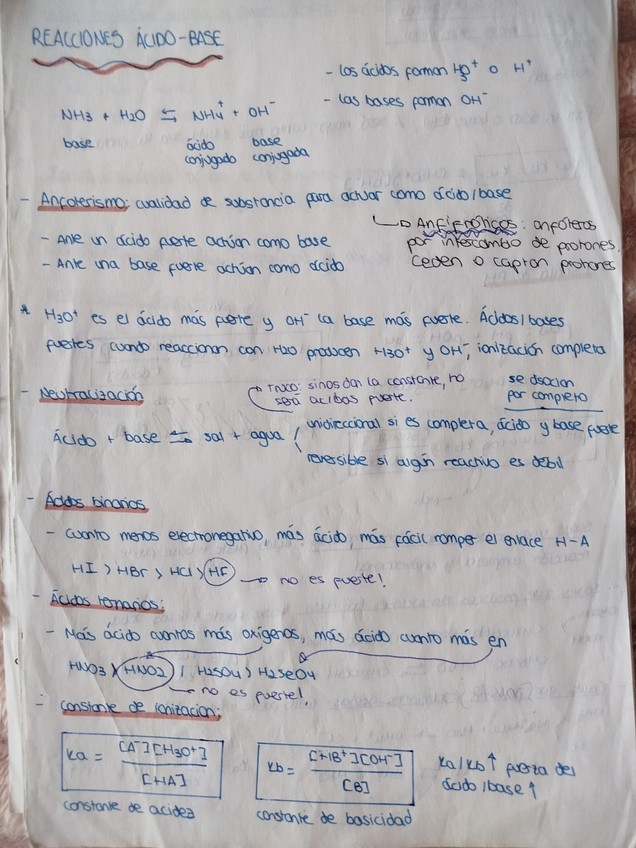 REACCIONES ÁCIDO-BASE
- los ácidos forman H3O⁺ o H⁺
- las bases forman OH⁻
NH3 + H2O ⇆ NH4⁺ + OH⁻
base ácido conjugado base conjugada
- Anfoterismo: cualidad de substancia para actuar como ácido/base
↳ Anfipróticos: anfóteros
por intercambo de protones.
Ceden o captan protones
- Ante un ácido fuerte actúan como base
- Ante una base fuerte actúan como ácido
* H3O⁺ es el ácido más fuerte y OH⁻ la base más fuerte. Ácidos/bases
fuertes cuando reaccionan con H2O producen H3O⁺ y OH⁻, ionización completa
se disocian
por completo
- Neutralización
→ Truco: si nos dan la constante, no
será ac/bas fuerte.
Ácido + base ⇆ sal + agua
unidireccional si es completa, ácido y base fuerte
reversible si algún reactivo es débil
- Ácidos binarios
- cuanto menos electronegativo, más ácido, más fácil romper el enlace H-A
HI > HBr > HCl > HF → no es fuerte!
- Ácidos ternarios:
- Más ácido cuantos más oxígenos, más ácido cuanto más en
HNO3 > HNO2 / H2SO4 > H2SeO4
→ no es fuerte!
- Constante de ionización:
Ka = [A⁻][H3O⁺] / [HA]
constante de acidez
Kb = [HB⁺][OH⁻] / [B]
constante de basicidad
Ka/Kb ↑ fuerza del
ácido/base ↑